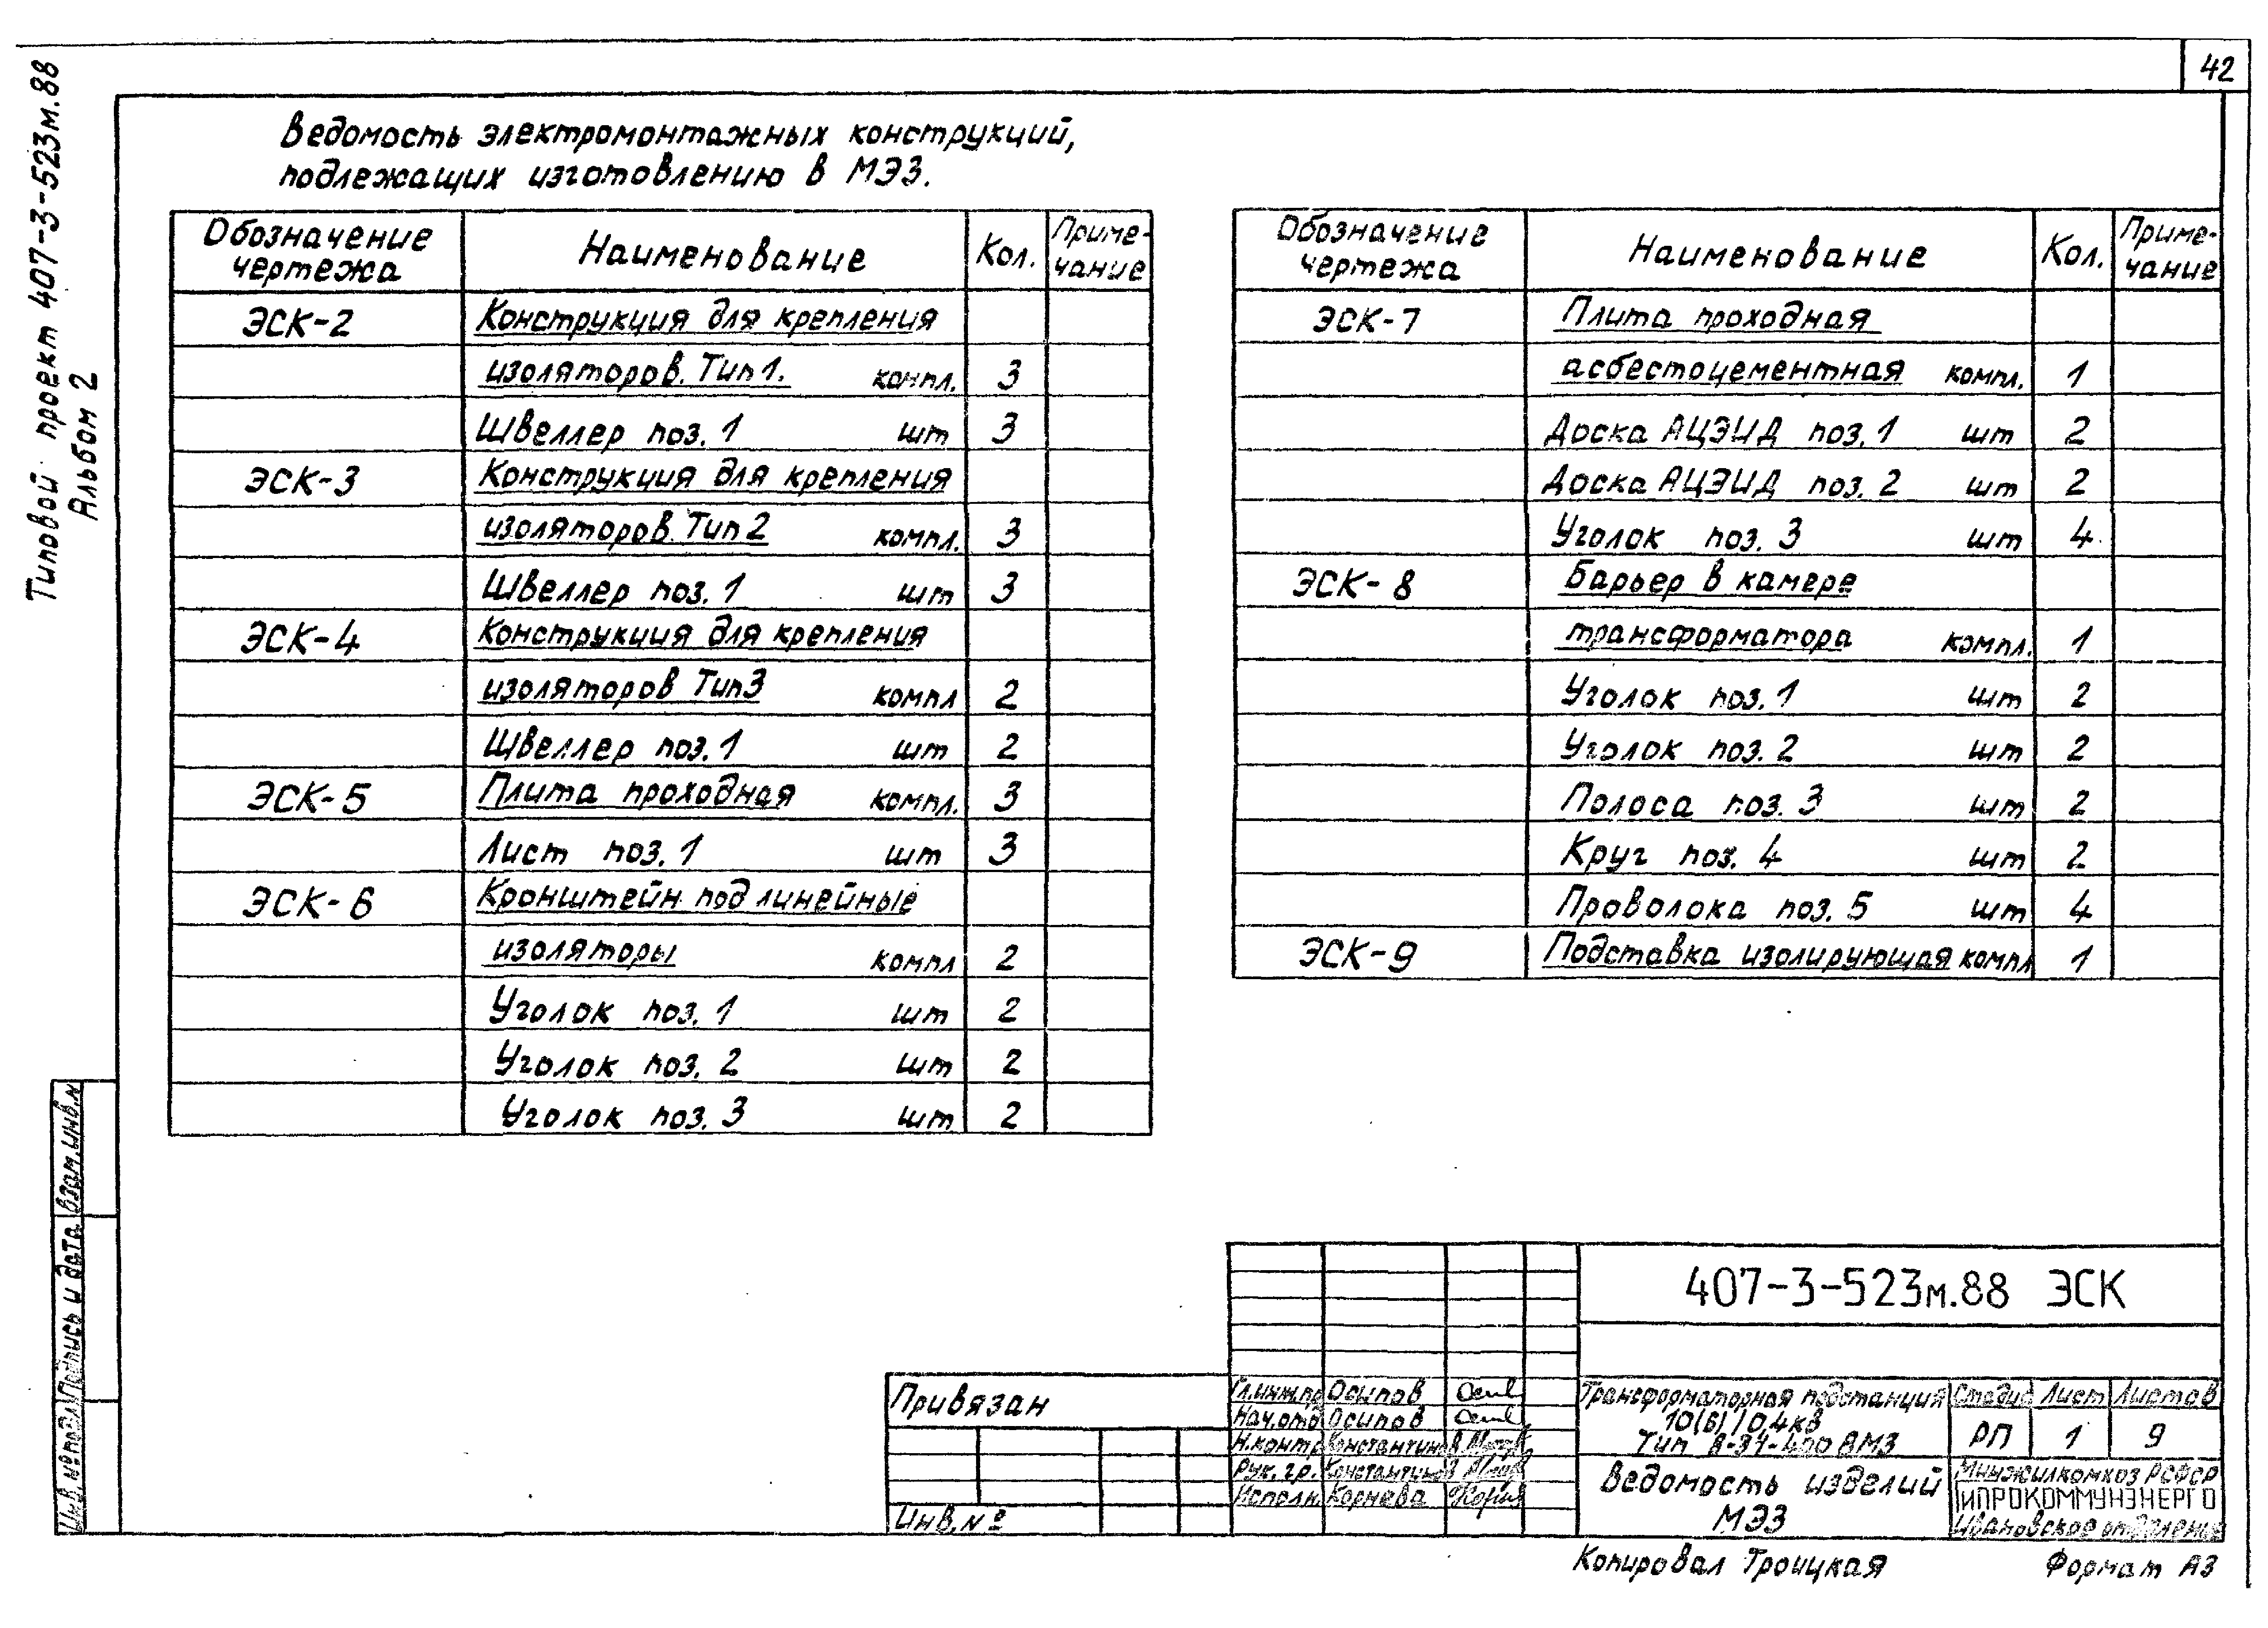 42
Типовой проект 407-3-523м.88
Альбом 2
Ведомость электромонтажных конструкций,
подлежащих изготовлению в МЭЗ.
Обозначение чертежа Наименование Кол. Приме-чание
ЭСК-2 Конструкция для крепления
изоляторов. Тип 1. компл. 3
Швеллер поз. 1 шт 3
ЭСК-3 Конструкция для крепления
изоляторов. Тип 2 компл. 3
Швеллер поз. 1 шт 3
ЭСК-4 Конструкция для крепления
изоляторов Тип 3 компл 2
Швеллер поз. 1 шт 2
ЭСК-5 Плита проходная компл. 3
Лист поз. 1 шт 3
ЭСК-6 Кронштейн под линейные
изоляторы компл 2
Уголок поз. 1 шт 2
Уголок поз. 2 шт 2
Уголок поз. 3 шт 2
Обозначение чертежа Наименование Кол. Приме-чание
ЭСК-7 Плита проходная
асбестоцементная компл. 1
Доска АЦЭИД поз. 1 шт 2
Доска АЦЭИД поз. 2 шт 2
Уголок поз. 3 шт 4
ЭСК-8 Барьер в камере
трансформатора компл. 1
Уголок поз. 1 шт 2
Уголок поз. 2 шт 2
Полоса поз. 3 шт 2
Круг поз. 4 шт 2
Проволока поз. 5 шт 4
ЭСК-9 Подставка изолирующая компл 1
Взам.инв.№
Подпись и дата
Инв.№ подл
Привязан
Инв.№
407-3-523м.88 ЭСК
Гл.инж.пр Осипов
Нач.отд Осипов
Н.контр Константинов
Рук. гр. Константинов
Исполн. Корнева
Трансформаторная подстанция
10(6)/0,4кв
Тип В-31-400 ВМЗ
Стадия Лист Листов
РП 1 9
Ведомость изделий
МЭЗ
Минжилкомхоз РСФСР
ГИПРОКОММУНЭНЕРГО
Ивановское отделение
Копировал Троицкая Формат А3